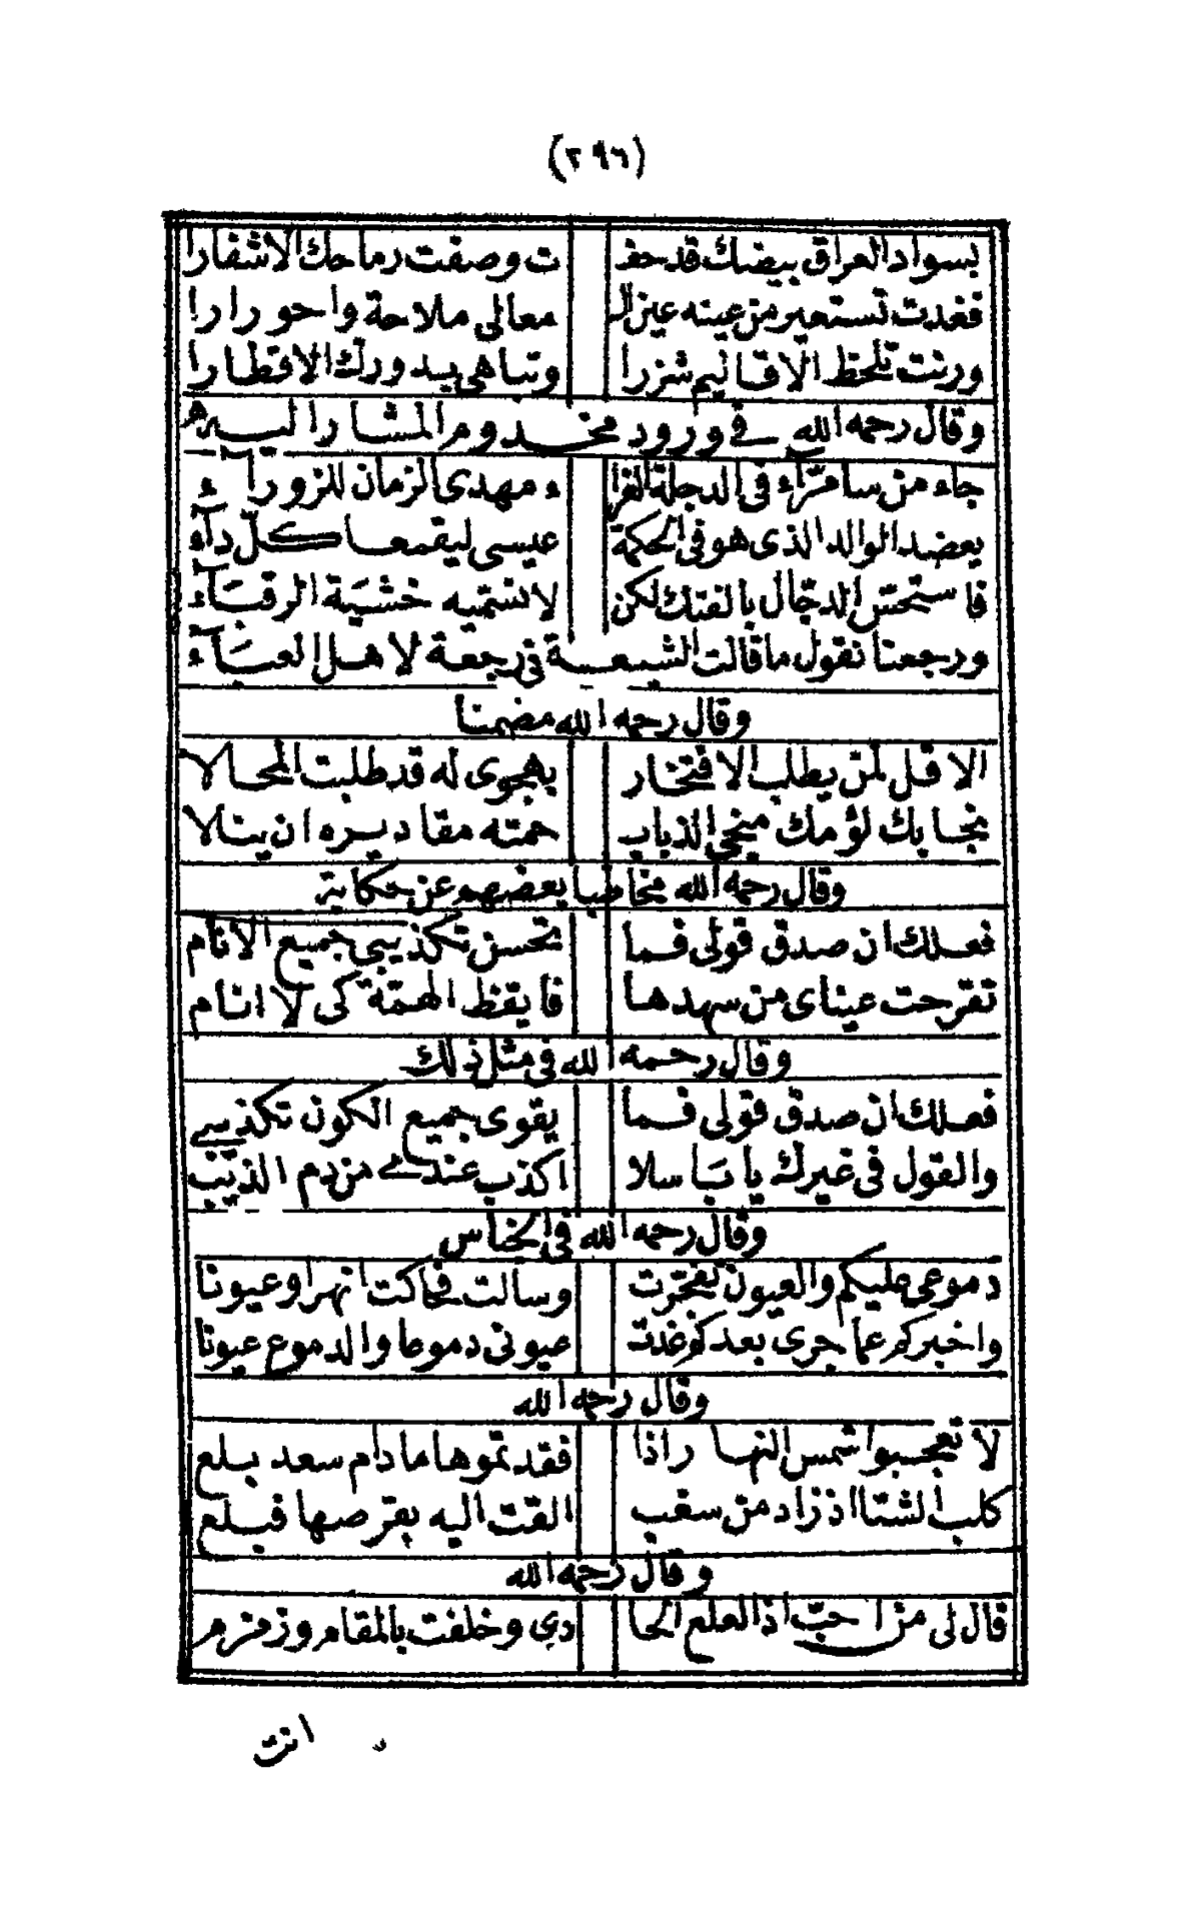 (٢٩٦)
بسواد العراق بيضك قد حف ت وصفت رماحك الاشفارا
فغدت تستعير من عينه عين ال معالى ملاحة واحورارا
ورنت تلحظ الاقاليم شزرا وتباهى ببدورك الاقطارا
وقال رحمه الله في ورود مخدوم المشار اليه
جاء من سامرّاء فى الدجلة الغرا ء مهدى الزمان للزوراء
يعضد الوالد الذى هو فى الحكمة عيسى ليقمعا كلّ دآء
فاستحسّ الدجّال بالفتك لكن لا نسمّيه خشيَة الرقبَآء
ورجعنا نقول ما قالت الشيعة فى رجعة لاهل العبَآء
وقال رحمه الله مضمنا
الا قل لمن يطلب الافتخار بهجوى له قد طلبت المحالا
نجا بك لؤمك منجى الذباب حمته مقاديره ان ينالا
وقال رحمه الله مخاطبا بعضهم عن حكاية
فعلك ان صدق قولى فما تحسن تكذيبى جميع الانام
تقرحت عيناى من سهدها فايقظ الهمّة كى لا انام
وقال رحمه الله فى مثل ذلك
فعلك ان صدق قولى فما يقوى جميع الكون تكذيبي
والقول فى غيرك يا باسلا اكذب عندي من دم الذيّب
وقال رحمه الله فى الجناس
دموعى عليكم والعيون تفجّرت وسالت فحاكت انهرا وعيونا
واخبركم عما جرى بعدكم غدت عيونى دموعا والدموع عيونا
وقال رحمه الله
لا تعجبوا شمس النهار اذا فقدتموها ما دام سعد بلع
كلب الشتا اذ زاد من سغب القت اليه بقرصها فبلع
وقال رحمه الله
قال لى من احبّ اذ العلع الحا دي وخلفت بالمقام وزمزم
انت